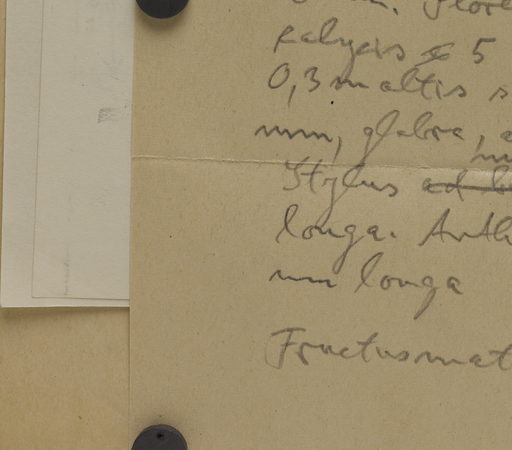 mm. Flor
kalycis 5
0,3 m altis s
mm, glabra, a
Stylus ad
longa. Anth
mm longa
Fructus mat